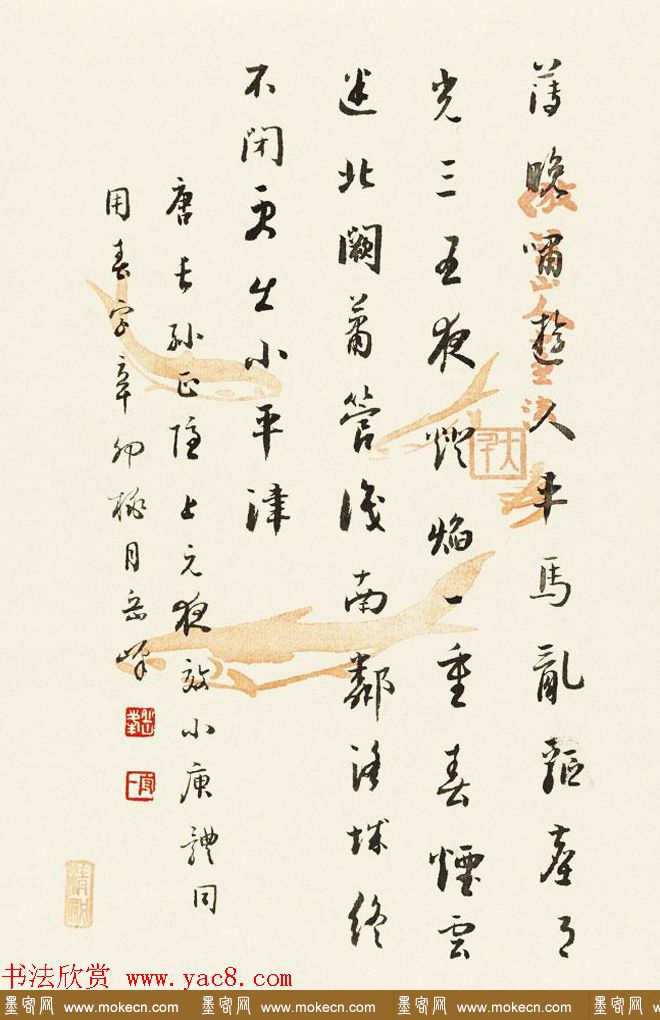 薄晚嘯遊人車馬亂驅塵月
光三五夜燈焰一重春煙雲
迷北闕蕭管識南鄰洛城終
不閉更出小平津
唐長孫正隱上元夜效小庾體同
用春字辛卯桃月岳峰
书法欣赏 www.yac8.com
墨客网 www.mokecn.com 墨客网 www.mokecn.com 墨客网 www.mokecn.com 墨客网 www.mokecn.com